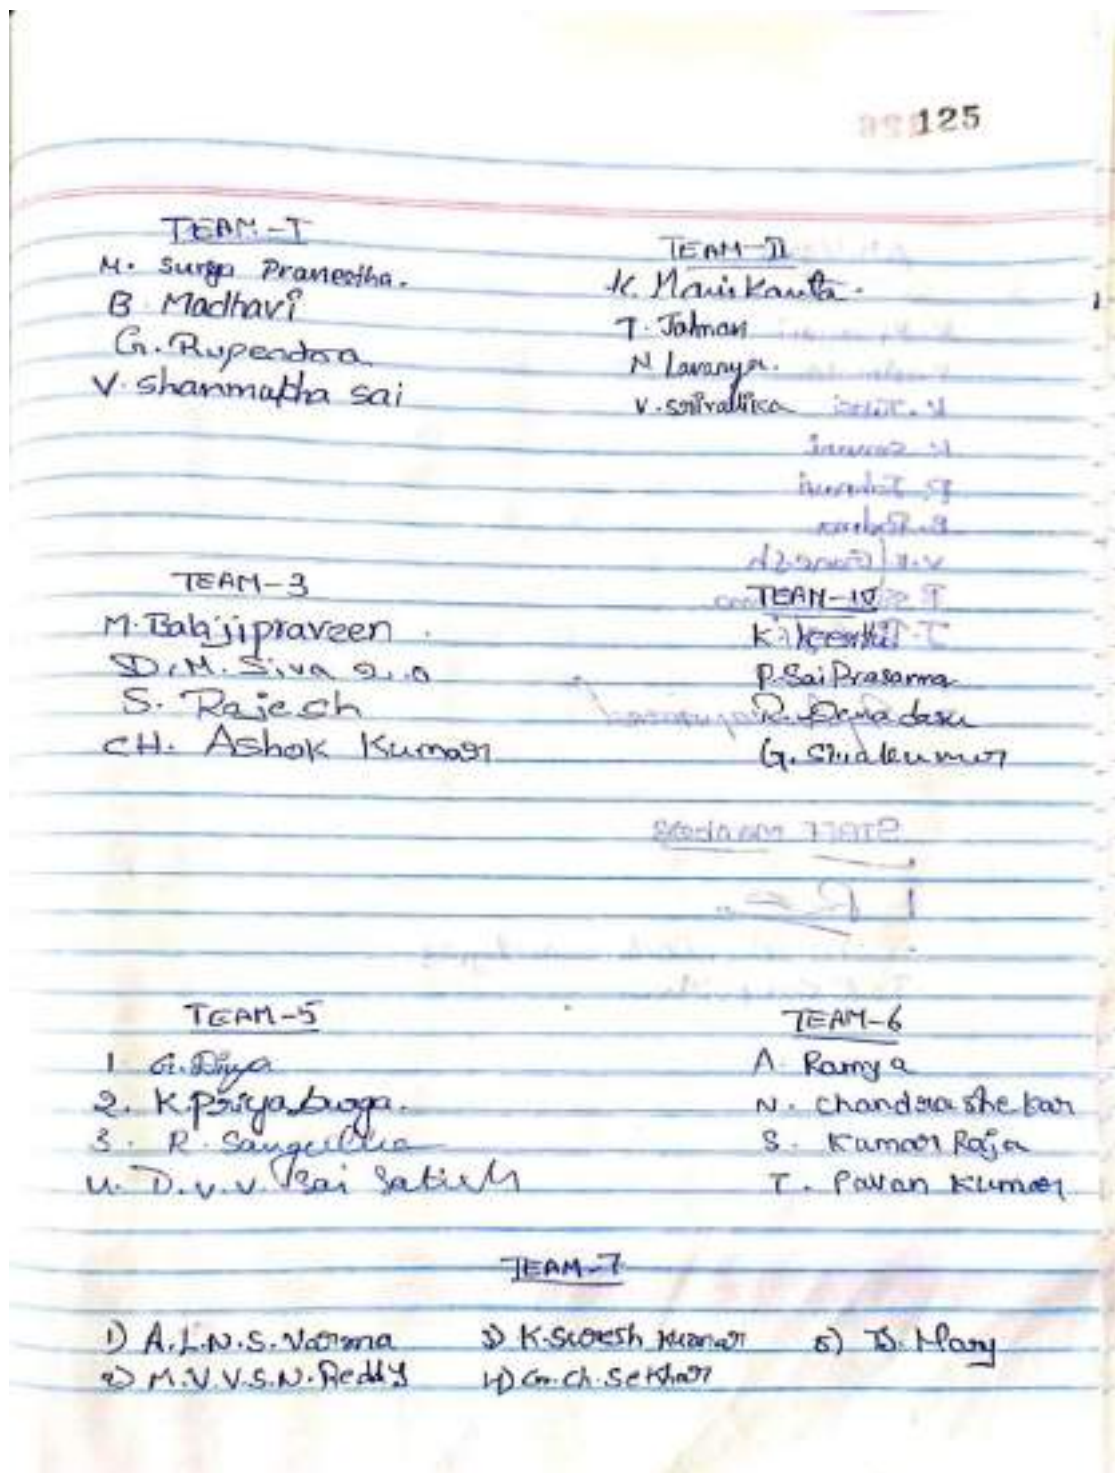 125
TEAM-I
M. Surya Praneetha.
B. Madhavi
G. Rupendra
V. Shanmukha Sai
TEAM-II
K. Mani Kanta.
T. Jalman
N Lavanya.
V. Srivallica
TEAM-3
M. Balaji praveen.
D. M. Siva
S. Rajesh
CH. Ashok Kumar
TEAM-IV
K. Keerthi
P. Sai Prasanna
R.
G. Sivakumar
TEAM-5
1 G. Divya
2. K. Priya Durga.
3. R. Sangeetha
4. D.V.V. Sai Satish
TEAM-6
A. Ramya
N. Chandra Shekar
S. Kumar Raja
T. Pavan Kumar
TEAM-7
1) A.L.N.S. Varma
2) M.V.V.S.N. Reddy
3) K. Suresh Kumar
4) G. Ch. Sekhar
5) D. Mary